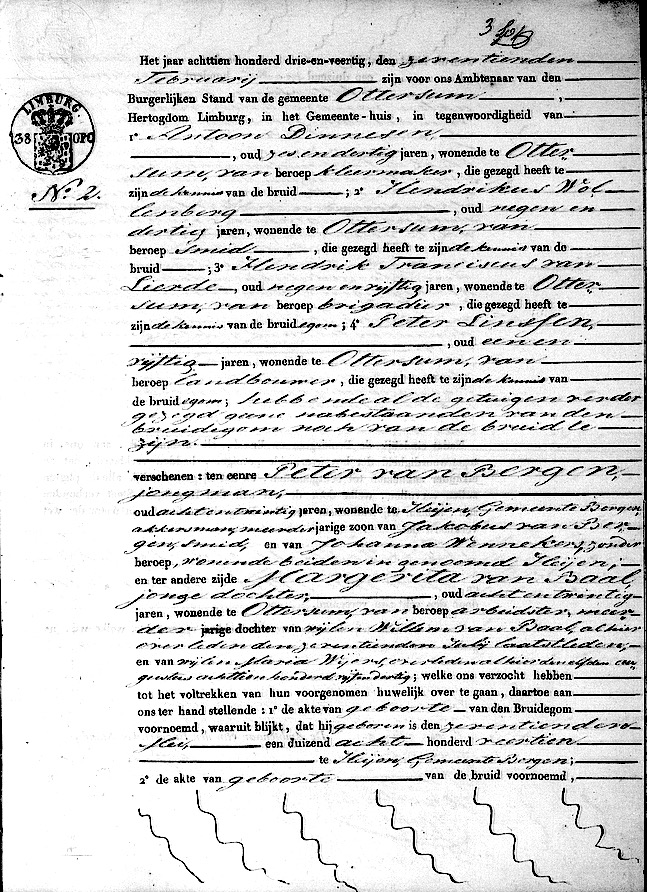 3
Het jaar achttien honderd drie-en-veertig, den zeventienden
Februarij zijn voor ons Ambtenaar van den
Burgerlijken Stand van de gemeente Ottersum,
LIMBURG.
Hertogdom Limburg, in het Gemeente-huis, in tegenwoordigheid van
38 OPC
1° Antoon Dinnesen
, oud zes en dertig jaren, wonende te Otter-
sum, van beroep kleermaker, die gezegd heeft te
N° 2.
zijn de kennis van de bruid ; 2° Hendrikus Wol-
lenberg , oud negen en
dertig jaren, wonende te Ottersum, van
beroep Smid , die gezegd heeft te zijn de kennis van de
bruid ; 3° Hendrik Franciscus van
Lierde , oud negen en vijftig jaren, wonende te Otter-
sum, van beroep brigadier, die gezegd heeft te
zijn de kennis van de bruidegom; 4° Peter Linssen,
, oud een en
vijftig jaren, wonende te Ottersum, van
beroep landbouwer, die gezegd heeft te zijn de kennis van
de bruidegom; hebbende al de getuigen verder
gezegd geene nabestaanden van den
bruidegom noch van de bruid te
zijn.
verschenen : ten eenre Peter van Bergen,
jongman,
oud acht en twintig jaren, wonende te Heijen, Gemeente Bergen,
akkersman, meerderjarige zoon van Jakobus van Ber-
gen, smid, en van Johanna Wennekers, zonder
beroep, wonende beiden in genoemd Heijen;
en ter andere zijde Margerita van Baal,
jonge dochter, , oud acht en twintig
jaren, wonende te Ottersum, van beroep arbeidster, meer-
der jarige dochter van wijlen Willem van Baal, alhier
overleden den zeventienden Julij laatstleden,
en van wijlen Maria Wijers, overleden alhier den elfden au-
gustus achttien honderd vijf en dertig; welke ons verzocht hebben
tot het voltrekken van hun voorgenomen huwelijk over te gaan, daartoe aan
ons ter hand stellende : 1° de akte van geboorte van den Bruidegom
voornoemd, waaruit blijkt, dat hij geboren is den zeventienden
Mei, een duizend acht honderd veertien
te Heijen, Gemeente Bergen;
2° de akte van geboorte van de bruid voornoemd,